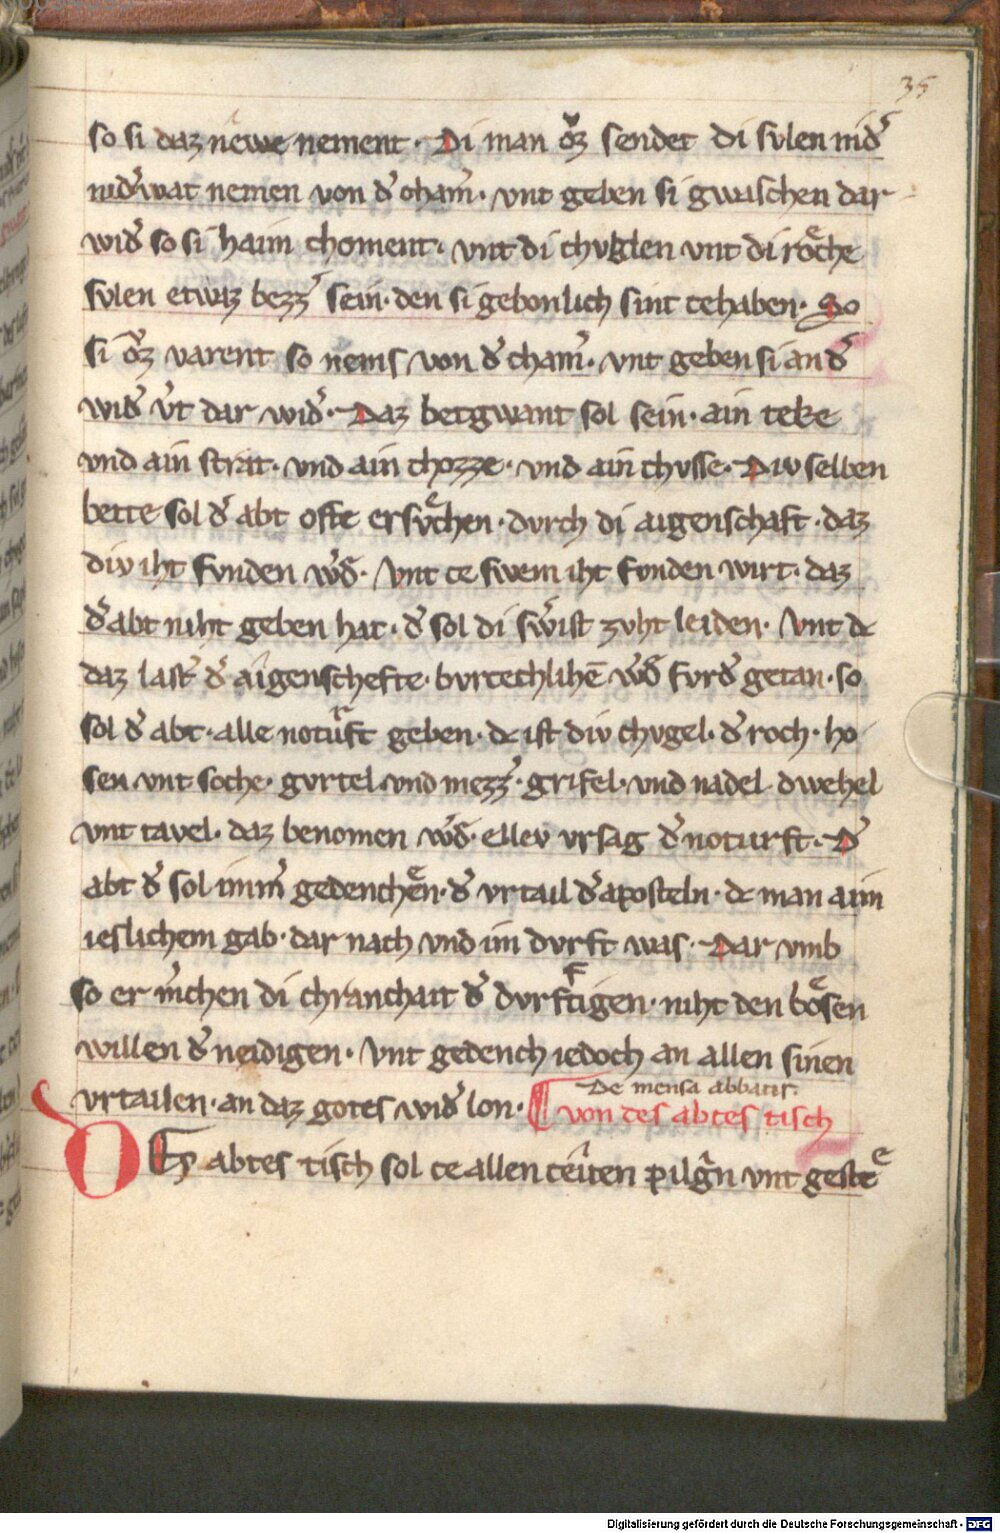 35
so si daz nêwe nement · Di man oͮz sendet di svlen nid᷒
nid᷒wat nemen von d᷒ cham̄ · vnt geben si gwaschen dar
wid᷒ so si haim choment · vnt di chvglen vnt di roͤche
svlen etwaz bezz᷒ sein · den si gebonlich sint cehaben · So
si oͮz varent so nems von d᷒ cham̄ · vnt geben si an d᷒
wid᷒ v̓t dar wid᷒ · Daz betgwant sol sein · ain teke
vnd ain strat · vnd ain chozze · vnd ain chvsse · Div selben
bette sol d᷒ abt ofte ersvͤchen · dvrch di aigenschaft · daz
div iht fvnden w᷒d̄ · Vnt ce swem iht fonden wirt · daz
d᷒ abt niht geben hat · d᷒ sol di sw᷒ist zvht leiden · Vnt dc
daz last᷒ d᷒ aîgenschefte · bvrtechlihē w᷒d̄ fvrd᷒ getan · so
sol d᷒ abt · alle notuͬft geben · dc ist div chvgel · d᷒ roch · ho
sen vnt soche · gvrtel vnd mezz᷒ · grifel · vnd nadel dwehel
vnt tavel · daz benomen w᷒d̄ · ellev vrsag d᷒ noturft · D᷒
abt d᷒ sol imm᷒ gedencheͤn · d᷒ vrtail d᷒ aposteln · dc man aim
ieslichem gab · dar nach vnd im dvrft was · Dar vmb
so er m᷒chen di chranchait d᷒ dvrftigen · niht den boͤsen
willen d᷒ neidigen · Vnt gedench iedoch an allen sinen
vrtailen · an daz gotes wid᷒ lon ·
De mensa abbatis ·
von des abtes tisch
DEs abtes tisch sol ce allen cêiten pilg᷒n vnt gesteͤ
Digitalisierung gefördert durch die Deutsche Forschungsgemeinschaft - DFG